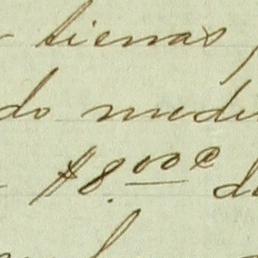 tierras
do medi
$8.00 d